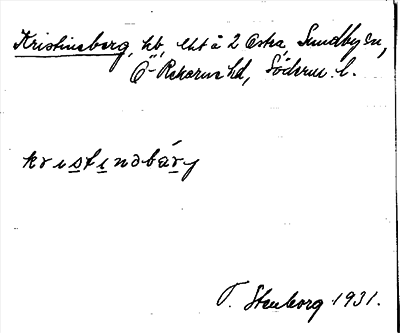 Kristineberg, hb, lht å 2 Eska, Sundby sn,
Ö-Rekarne hd, Söderm. l.
kristinəbærj
T. Stenborg 1931.